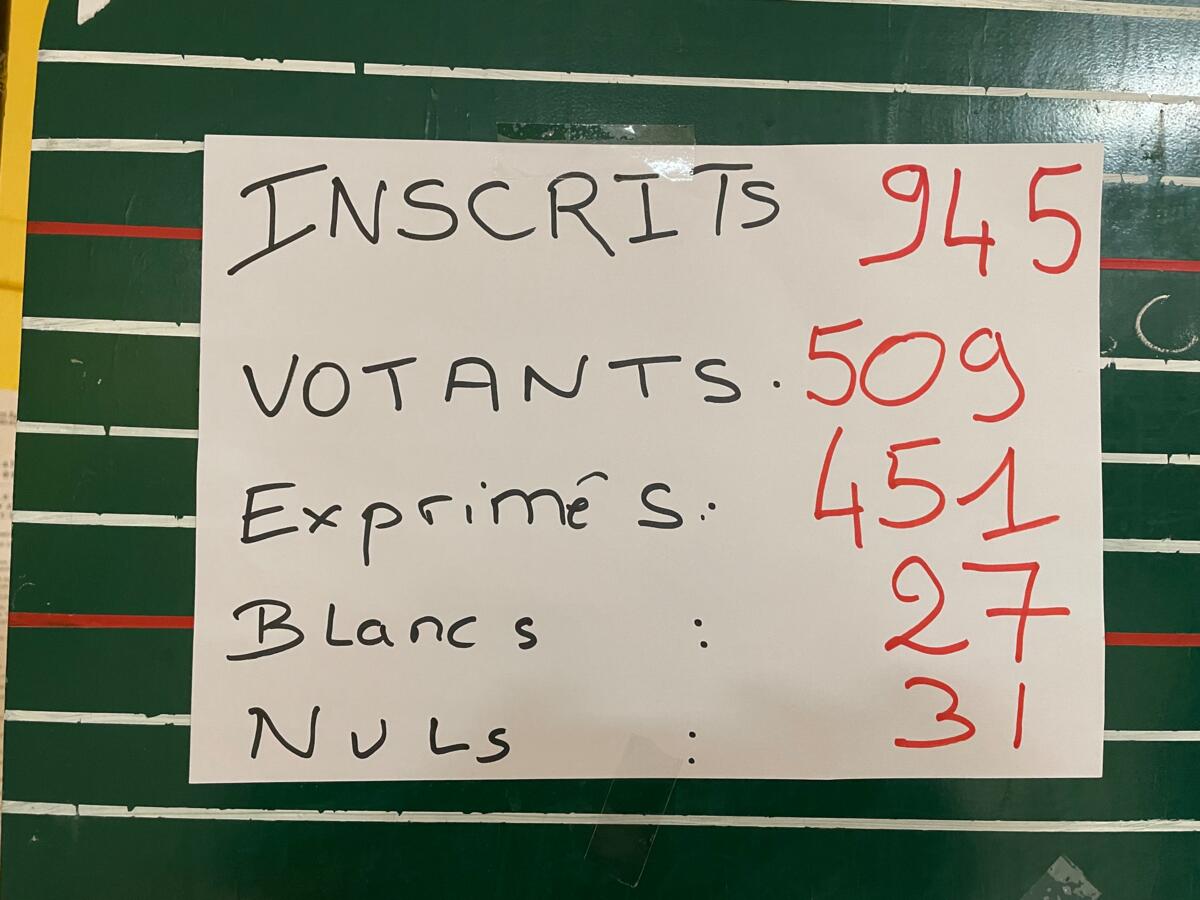 INSCRITS 945
VOTANTS. 509
Exprimés: 451
Blancs : 27
NULs : 31